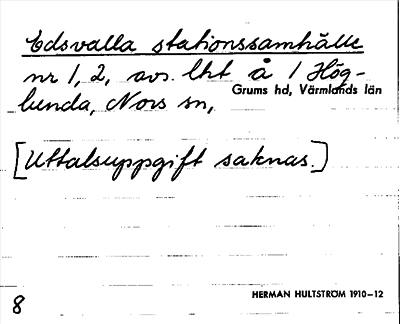 Edsvalla stationssamhälle
nr 1, 2, avs. lht å 1 Hög-
Grums hd, Värmlands län
lunda, Nors sn,
[Uttalsuppgift saknas.]
HERMAN HULTSTRÖM 1910–12
8